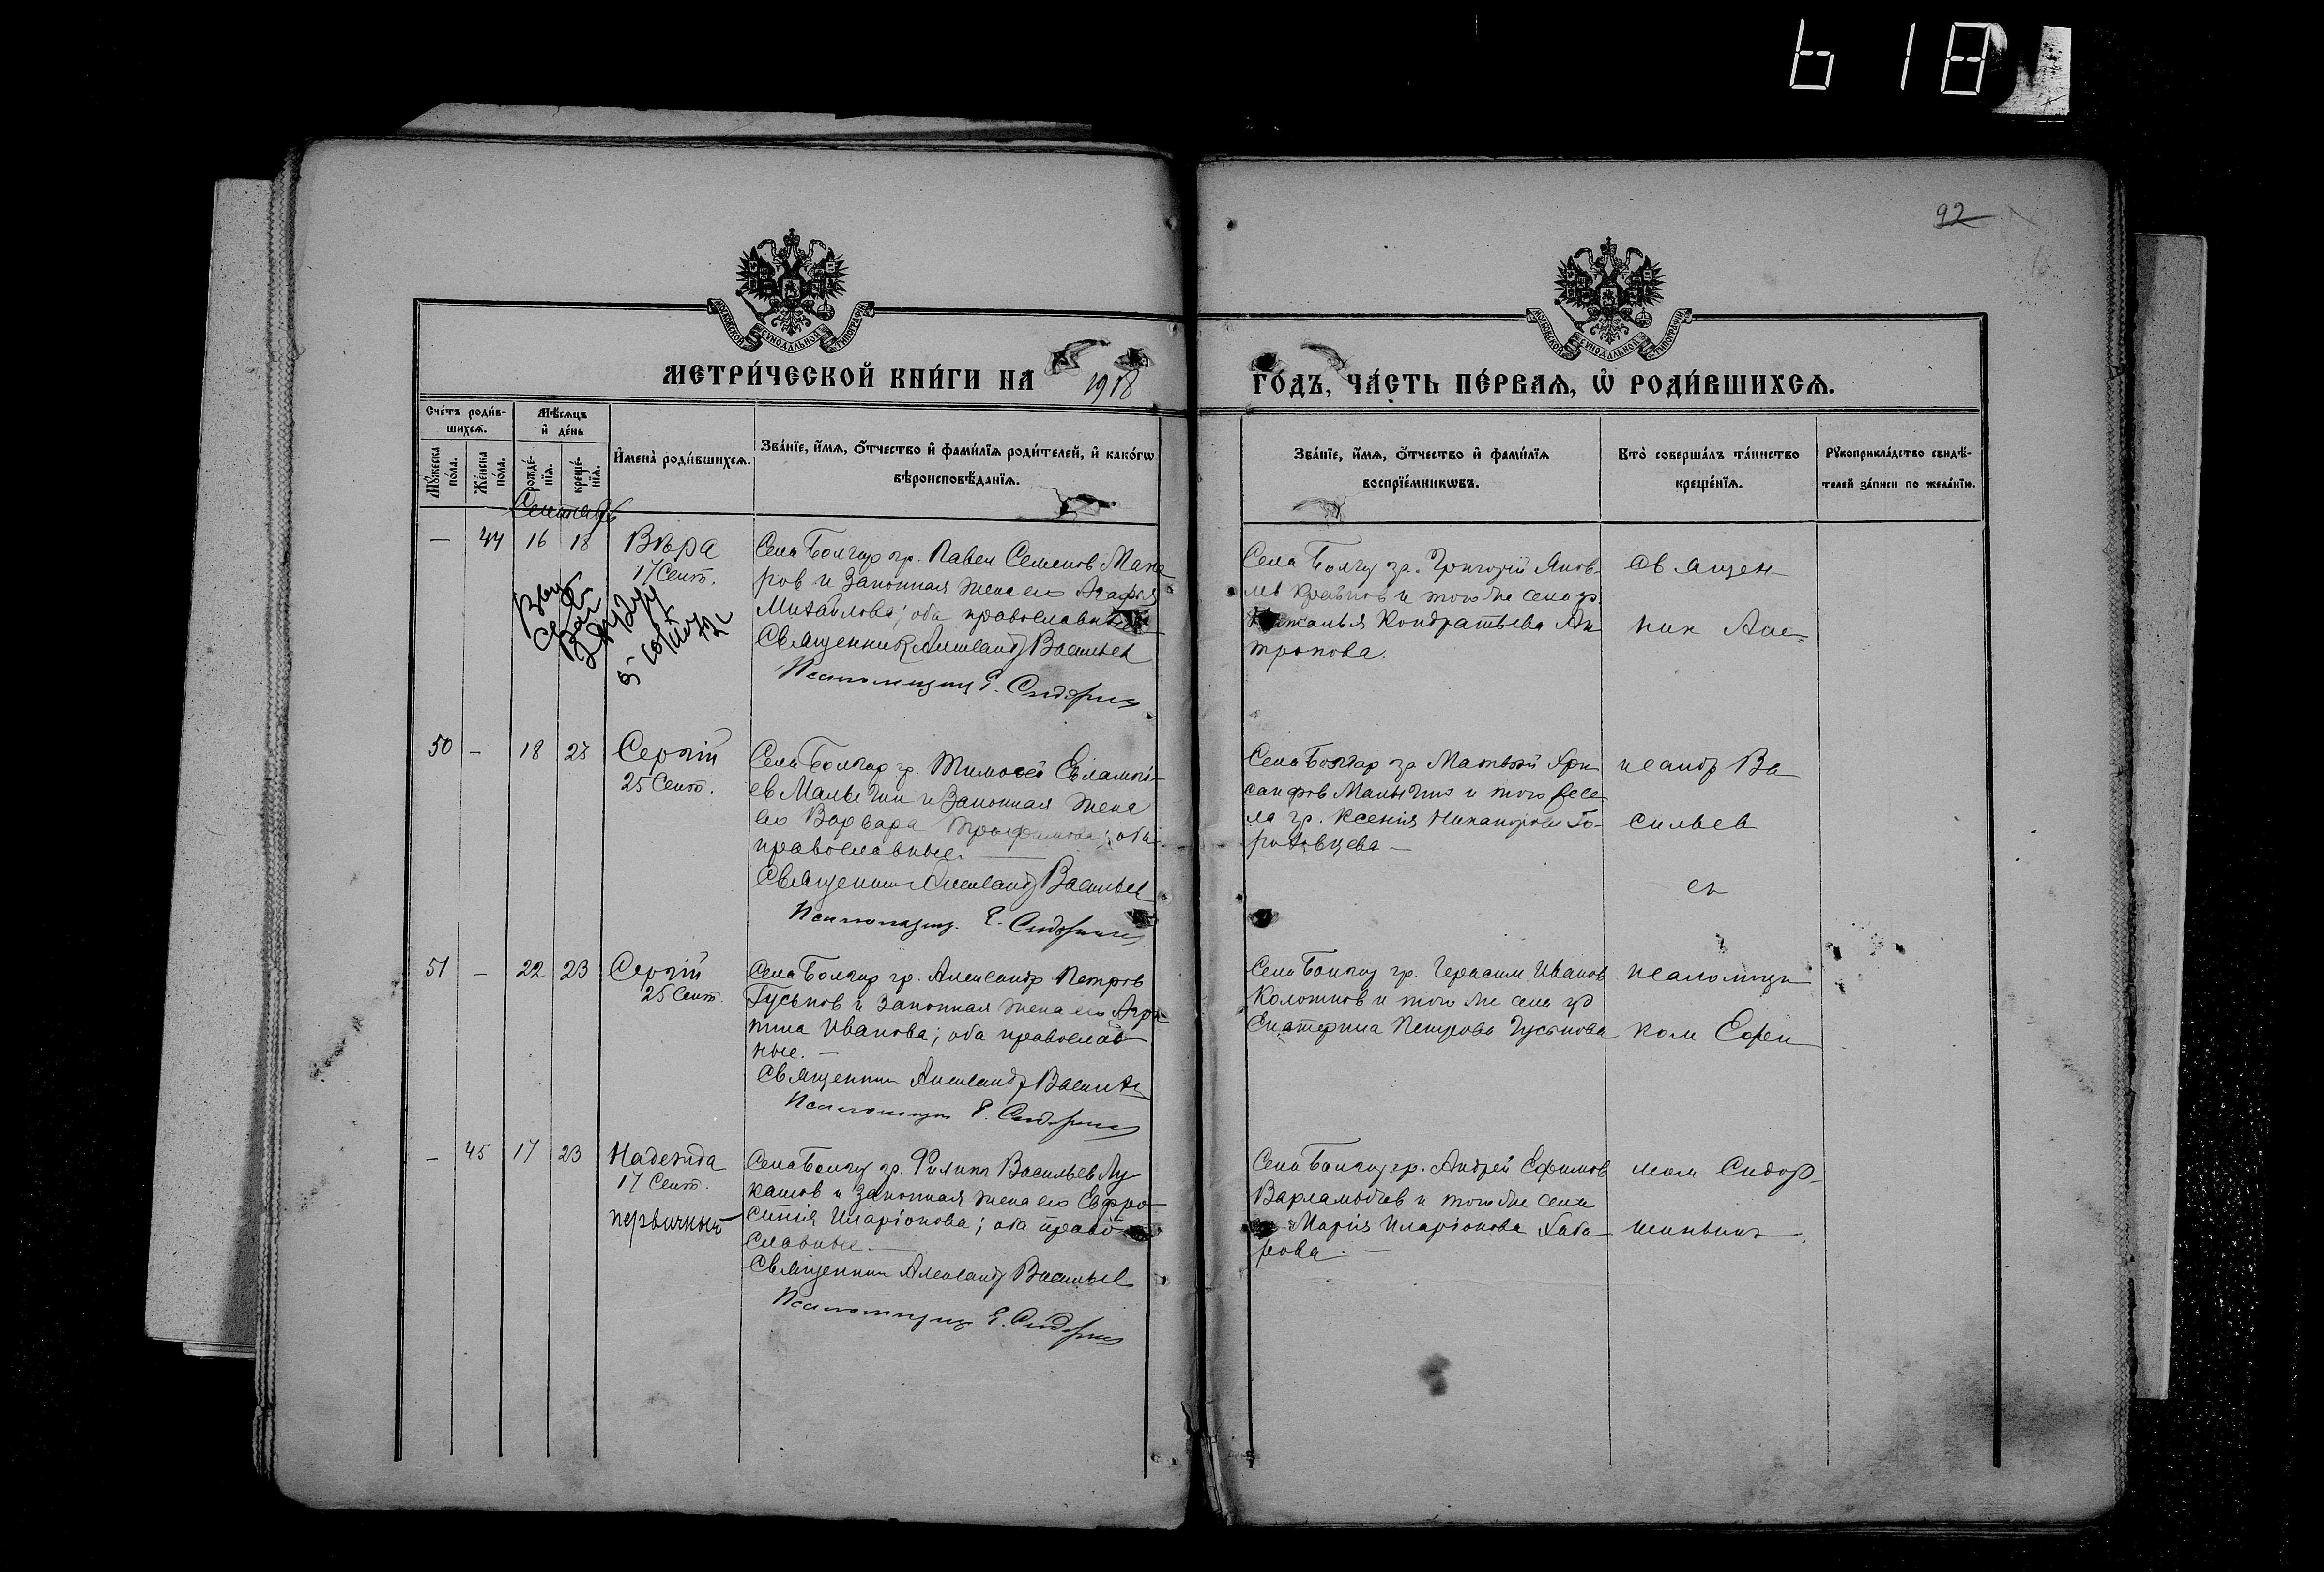 618
92
МОСКОВСКОЙ СѴНОДАЛЬНОЙ ТИПОГРАФІИ
МОСКОВСКОЙ СѴНОДАЛЬНОЙ ТИПОГРАФІИ
МЕТРИ́ЧЕСКОЙ КНИ́ГИ НА 1918
ГО́ДЪ, ЧА́СТЬ ПЕ́РВАѦ, Ѡ҆ РОДИ́ВШИХСѦ.
Сче́тъ роди́в-
шихсѧ.
Мѣ́сѧцъ
и҆ де́нь
Мꙋ́жеска
по́ла.
Же́нска
по́ла.
рожде́-
нїѧ.
креще́-
нїѧ.
И҆мена̀ роди́вшихсѧ.
Зва́нїе, и҆́мѧ, ѻ҆́тчество и҆ фами́лїѧ роди́телей, и҆ како́гѡ
вѣроисповѣ́данїѧ.
Зва́нїе, и҆́мѧ, ѻ҆́тчество и҆ фами́лїѧ
воспрїе́мникѡвъ.
Кто̀ соверша́лъ та́инство
креще́нїѧ.
Рꙋкоприкла́дство свидѣ́-
телей за́писи по жела́нїю.
Сентябрь
— 44 16 18 Вѣра
17 Сент.
Села Болгар гр. Павел Семенов
ров и законная жена его Агафья
Михайлова; оба православные
Священник Александр Васильев
Псаломщик Е. Сидоркин
Села Болгар гр. Григорій Яков-
лев и того же села гр.
Наталья Кондратьева Ан
тропова.
Священ
ник Але
50 — 18 23 Сергій
25 Сент.
Села Болгар гр. Тимофей Евлампі-
ев Малычин и законная жена
его Варвара Трофимова; оба
православные. —
Священник Александр Васильев
Псаломщик Е. Сидоркин
Села Болгар гр. Матвѣй Хри
санфов Малычин и того же се
ла гр. Ксенія
—
ксандр Ва
сильев
51 — 22 23 Сергій
25 Сент.
Села Болгар гр. Александр Петров
Гуськов и законная жена его Агри
пина Иванова; оба православ-
ные. —
Священник Александр Васильев
Псаломщик Е. Сидоркин
Села Болгар гр. Герасим Иванов
и того же села гр
Екатерина Петрова Гуськова
псаломщи
ком Ефи
— 45 17 23 Надежда
17 Сент.
первичный
Села Болгар гр. Филипп Васильев Лу
кашов и законная жена его Евфро-
синія Иларіонова; оба право-
славные. —
Священник Александр Васильев
Псаломщик Е. Сидоркин
Села Болгар гр. Андрей Ефимов
и того же села
Марія Иларіонова Хаба
рова. —
мом Сидор